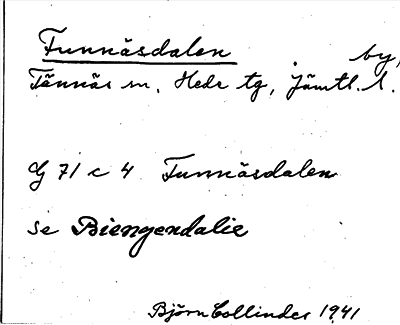 Funnäsdalen by,
Tännäs sn, Hede tg, Jämtl. l.
G 71 c 4 Funnäsdalen
se Biengendalie
Björn Collinder 1941